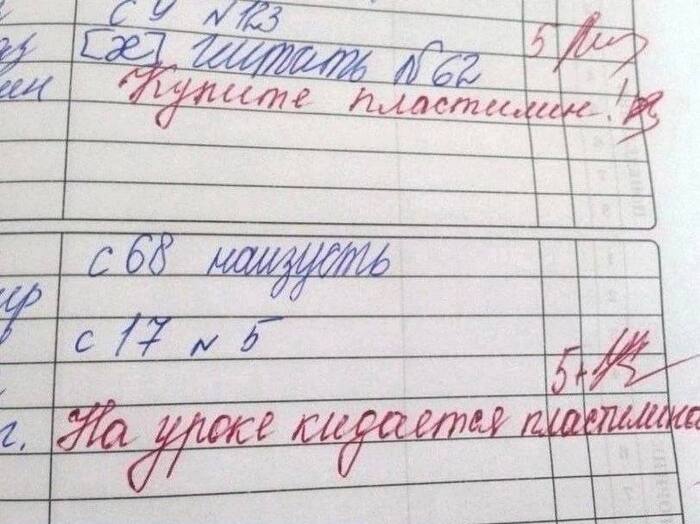 с 9 №123
[x] читать №62 5
Купите пластилин!
с 68 наизусть
с 17 № 5
5+
г. На уроке кидается пластилином